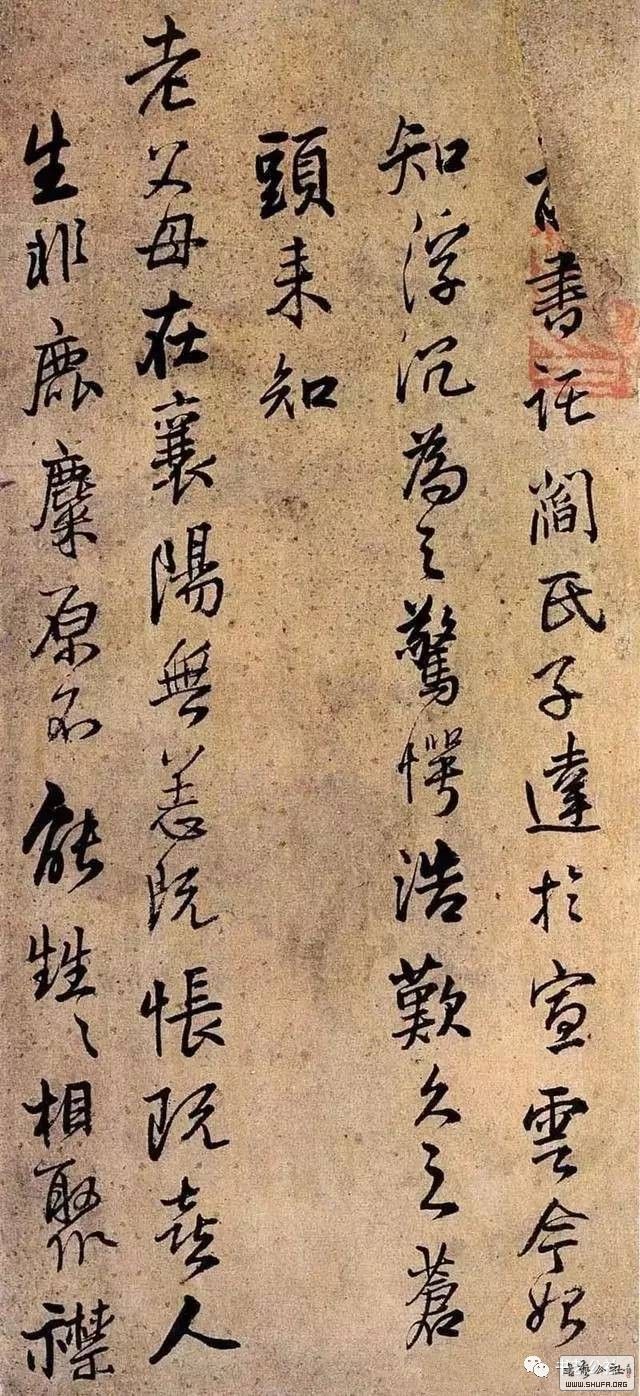 書託閻氏子達於宣雲今始
知浮沉為之驚愕浩歎久之蒼
頭未知
老父母在襄陽無恙既悵既喜人
生非鹿麋原不能甡々相聚襟
书艺公社
WWW.SHUFA.ORG